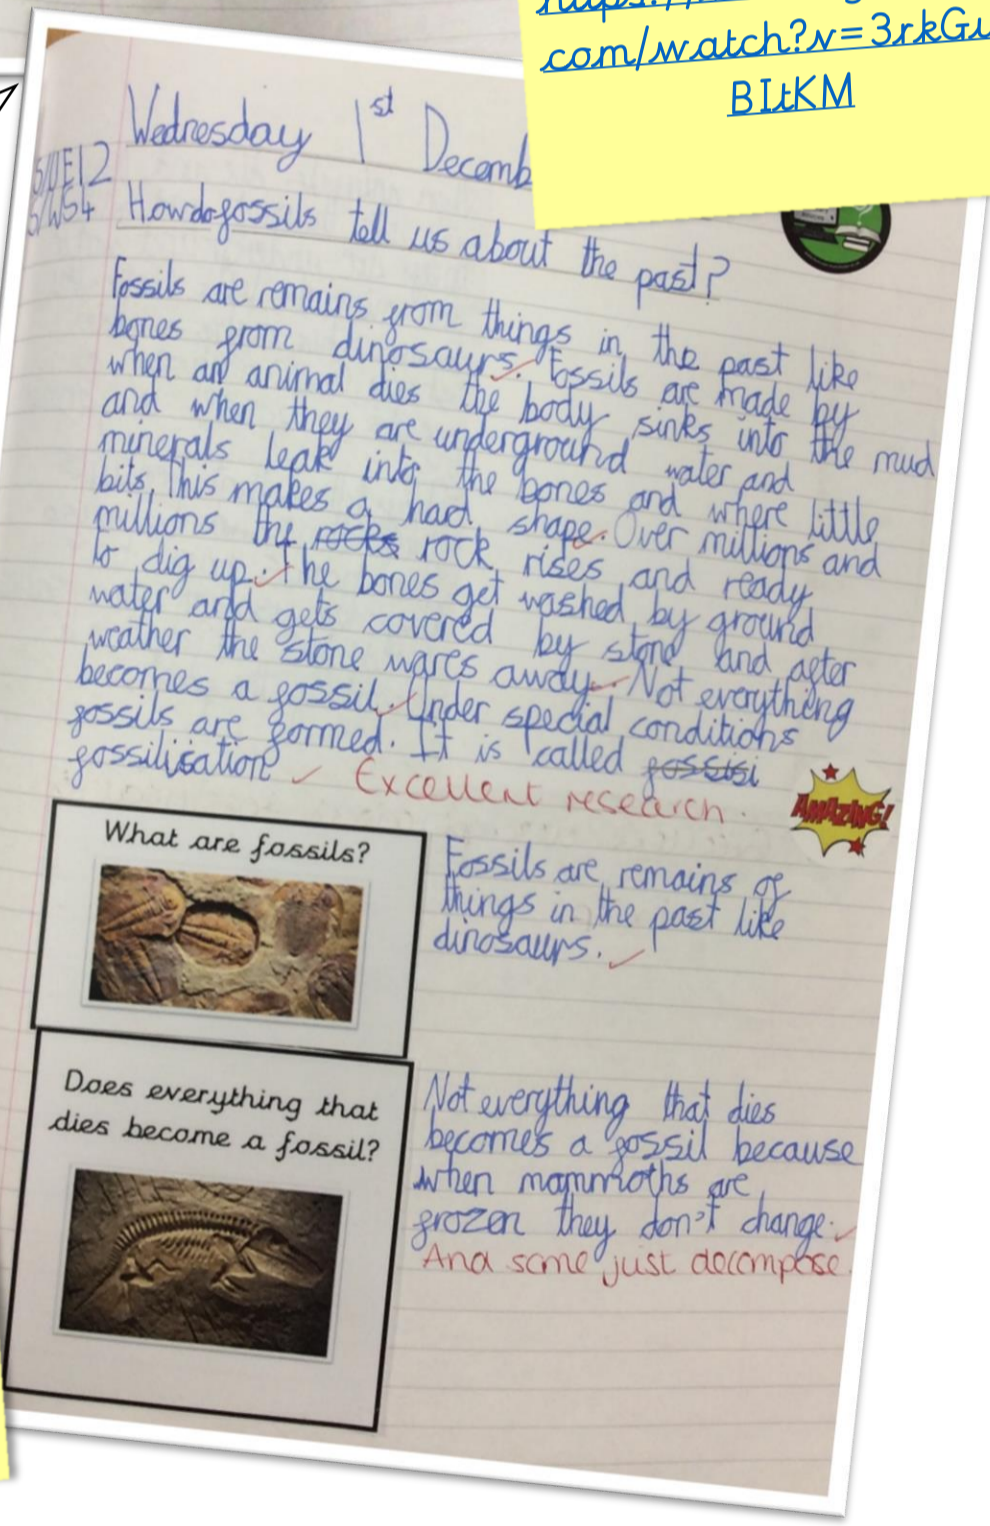 com/watch?v=3rkGu
BItKM
Wednesday 1st Decemb
How do fossils tell us about the past?
Fossils are remains from things in the past like
bones from dinosaurs. Fossils are made by
when an animal dies the body sinks into the mud
and when they are underground water and
minerals leak into the bones and where little
bits this makes a hard shape. Over millions and
millions the rocks rock rises and ready
to dig up. The bones get washed by ground
water and gets covered by stone and after
weather the stone wares away. Not everything
becomes a fossil. Under special conditions
fossils are formed. It is called fossisi
fossilisation
Excellent research.
AMAZING!
What are fossils?
Fossils are remains of
things in the past like
dinosaurs.
Does everything that
dies become a fossil?
Not everything that dies
becomes a fossil because
when mammoths are
frozen they don't change.
And some just decompose.